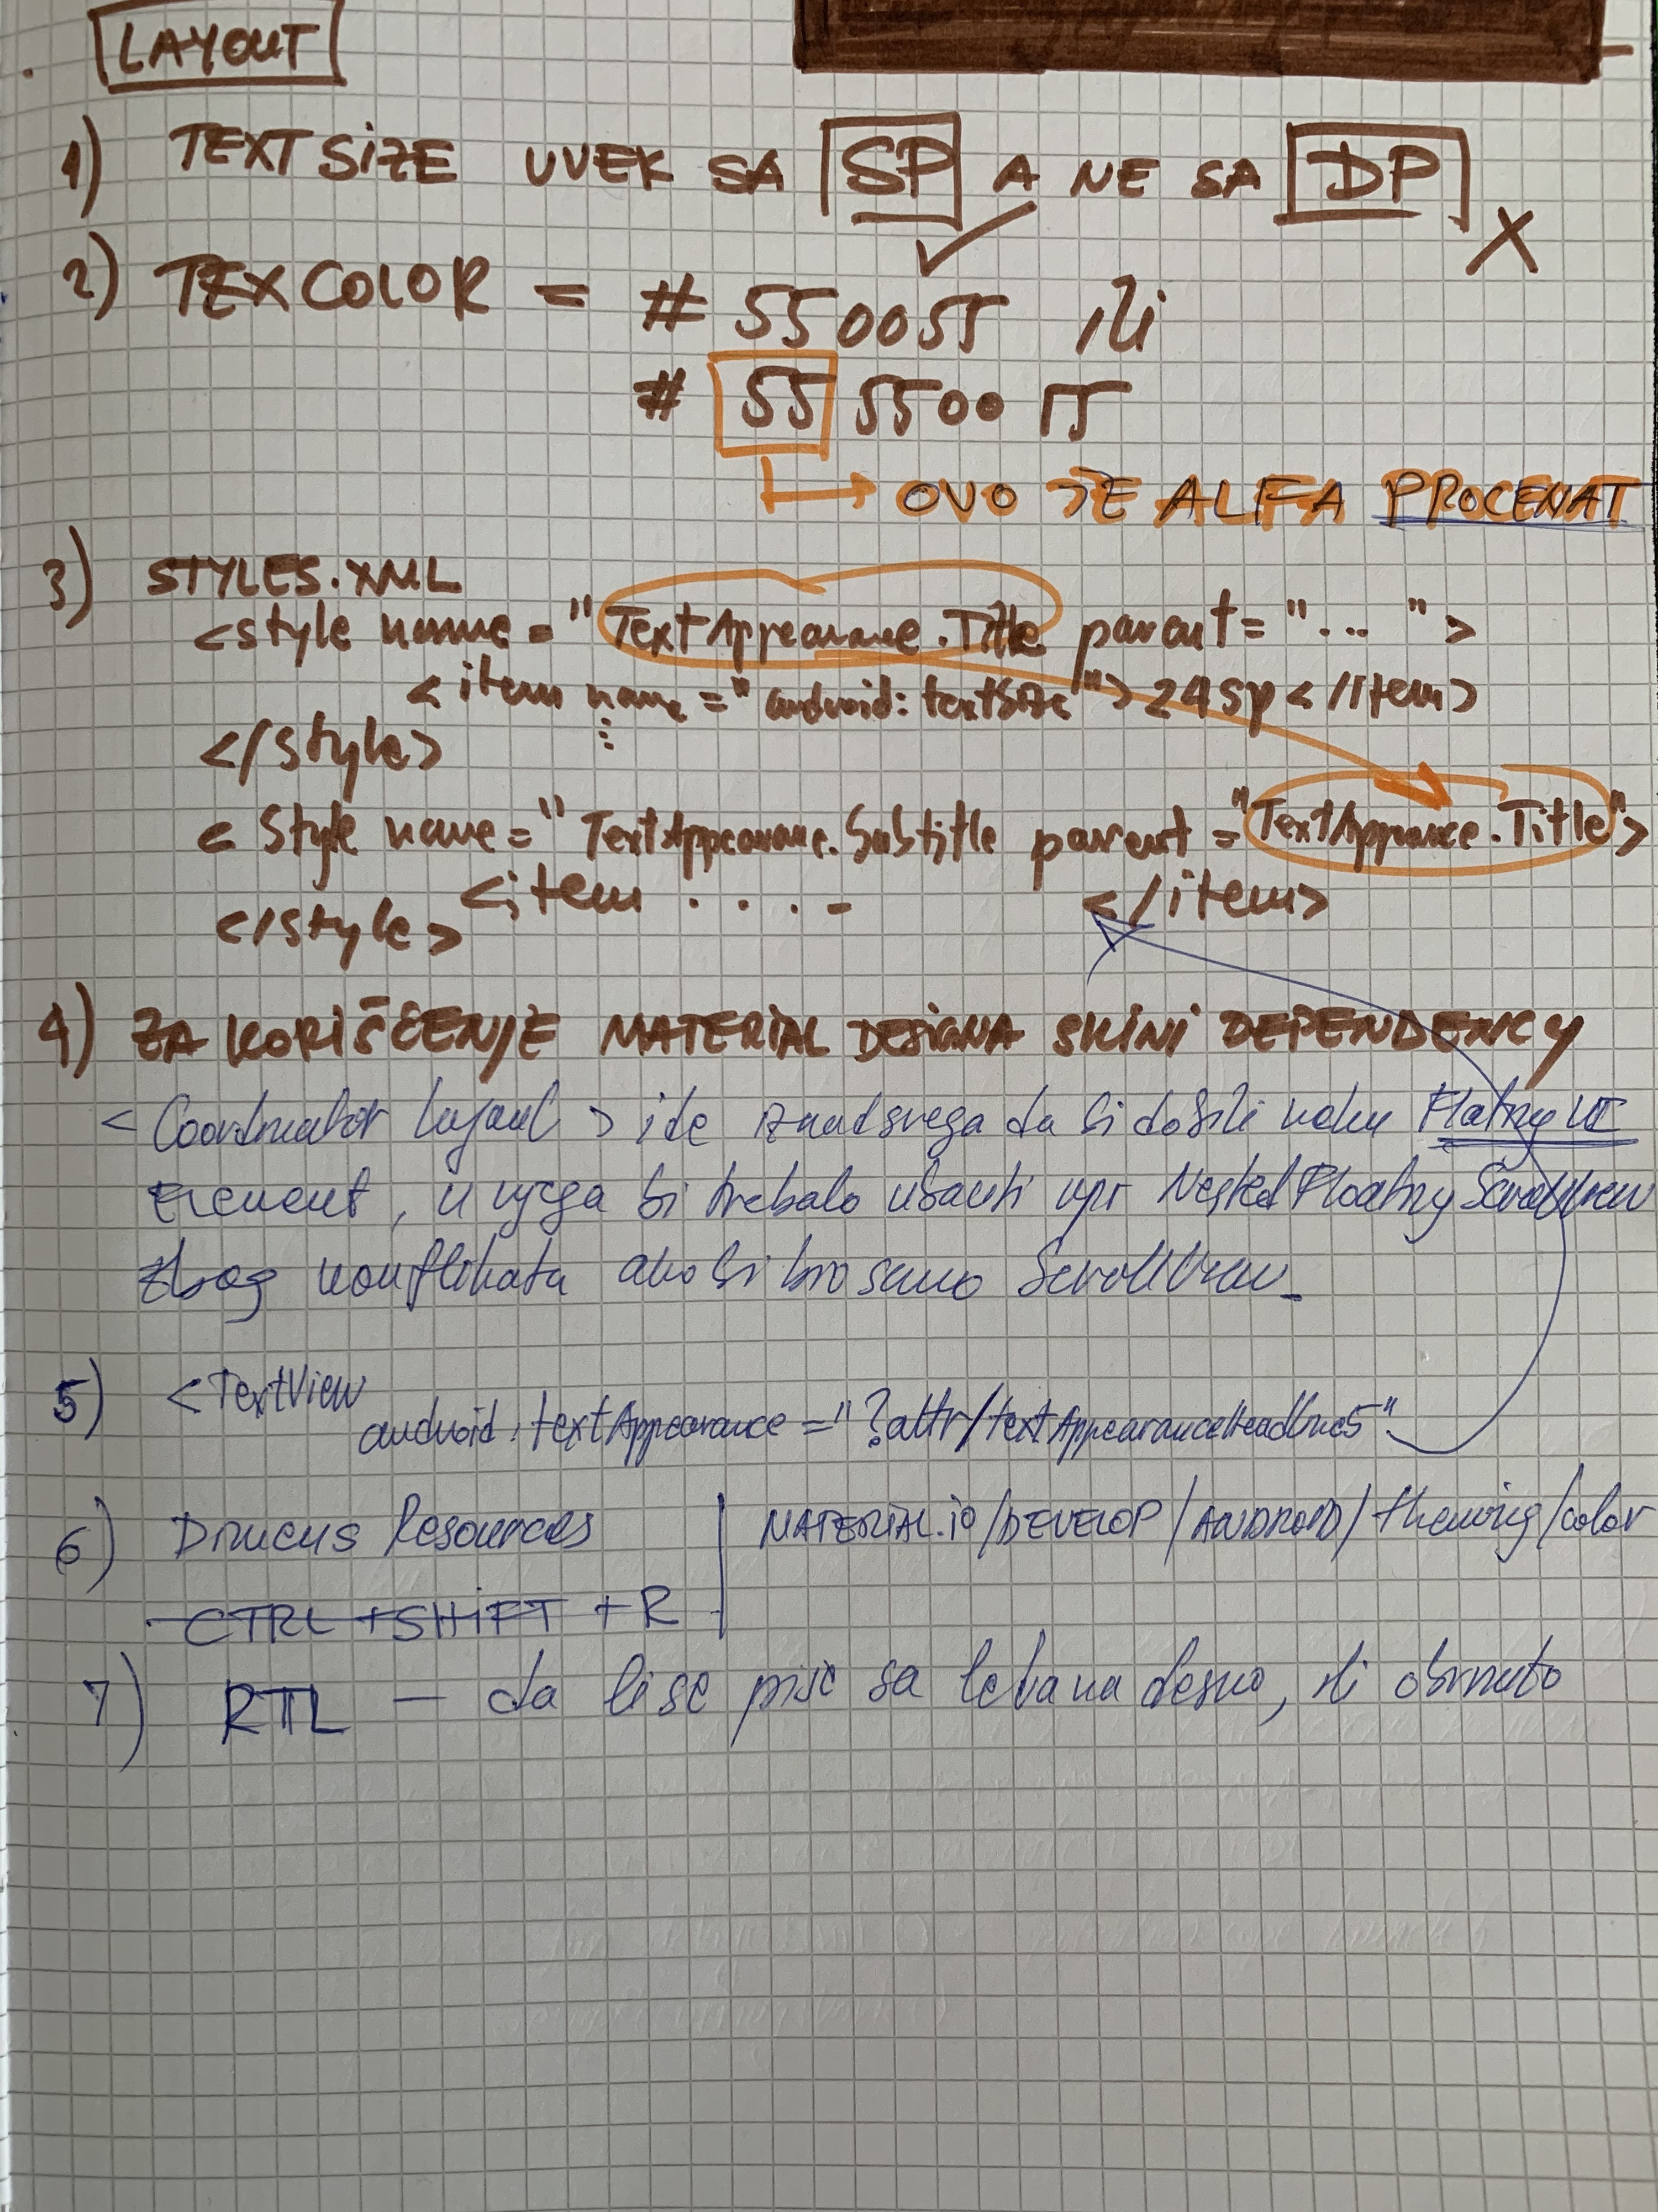 LAYOUT
1) TEXT SIZE UVEK SA SP A NE SA DP
2) TEXCOLOR = # 550055 ili
# 55 5500 55
OVO JE ALFA PROCENAT
3) STYLES.XML
<style name = "TextAppearance.Title parent = "... ">
<item name = " android: textSize "> 24sp < /item>
</style>
< Style name = " TextAppearance.Subtitle parent = "TextAppearance.Title">
<item .... </item>
</style>
4) ZA KORIŠĆENJE MATERIAL DESIGNA SKINI DEPENDENCY
< Coordinator layout > ide iznad svega da bi dobili neku Floating UI
element, u njega bi trebalo ubaciti npr Nested Floating ScrollView
zbog konflikata ako bi bio samo ScrollView
5) <TextView
android:textAppearance = "?attr/textAppearanceHeadline5"
6) Resources | MATERIAL.io/DEVELOP/ANDROID/theming/color
CTRL + SHIFT + R
7) RTL – da li se piše sa leva na desno, ili obrnuto